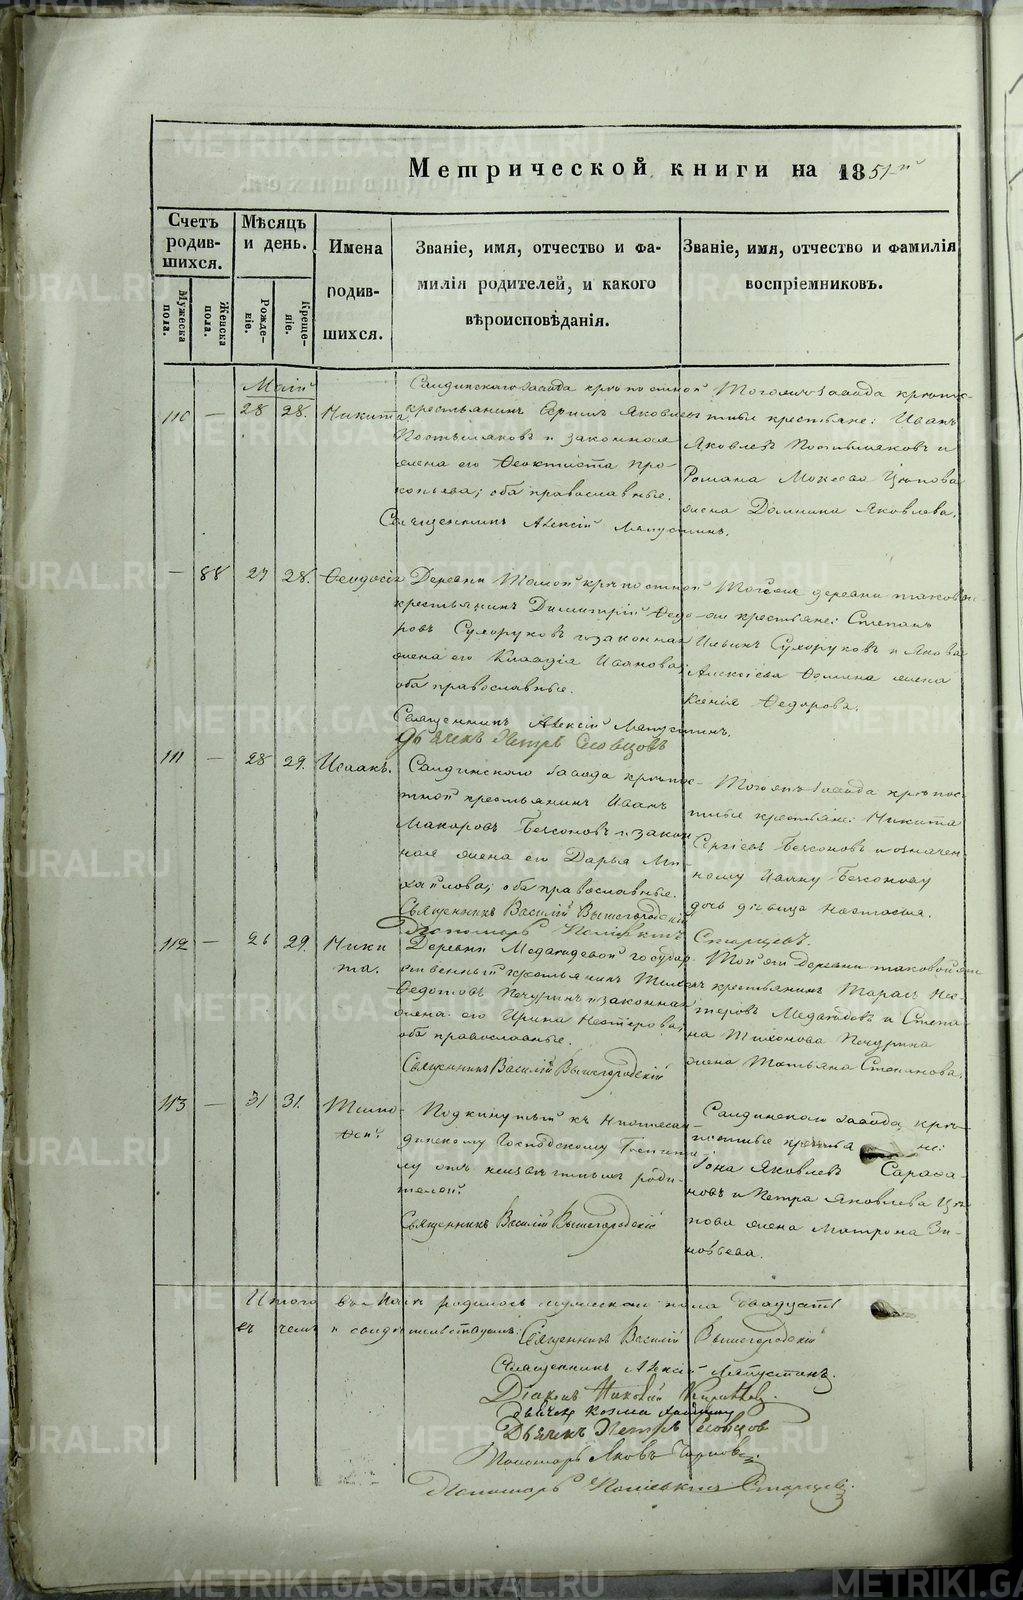 Метрической книги на 1851-й
Счетъ родившихся.
Мужеска пола.
Женска пола.
Мѣсяцъ и день.
Рожденіе.
Крещеніе.
Имена родившихся.
Званіе, имя, отчество и фамилія родителей, и какого вѣроисповѣданія.
Званіе, имя, отчество и фамилія воспріемниковъ.
Май
110 — 28 28. Никита.
Салдинскаго завода крѣпостной
крестьянинъ Яковлевъ
и законная
жена его Феоктиста Про-
копьева; оба православные.
Священникъ Алексій Ляпустинъ.
Тогоже завода крѣпос-
тные крестьяне: Иванъ
Яковлевъ и
Романа Мокеева
жена Домника Яковлева.
— 88 27 28. Феодосія
Деревни крѣпостной
крестьянинъ Димитрій Федо-
ровъ Сухоруковъ и законная
жена его Клавдія Иванова;
оба православные.
Священникъ Алексій Ляпустинъ.
Дьячекъ Петръ Словцовъ
Тойже деревни таковы
же крестьяне: Степанъ
Ильинъ Сухоруковъ и Якова
Алексіева Фомина жена
Ксенія Федорова.
111 — 28 29. Исаакъ.
Салдинскаго завода крѣпос-
тной крестьянинъ Иванъ
Макаровъ Безсоновъ и закон-
ная жена его Дарья Ми-
хайлова; оба православные.
Священникъ Василій Вышегородскій
Пономарь Старцевъ.
Тогожъ завода крѣпос-
тные крестьяне: Никита
Сергіевъ Безсоновъ и означен-
ному Ивану Безсонову
дочь дѣвица Настасья.
112 — 26 29. Ники-
та.
Деревни Медвѣдевой государ-
ственный крестьянинъ
Федотовъ Печуринъ и законная
жена его Ирина Нестерова;
оба православные.
Священникъ Василій Вышегородскій
Той же деревни таковой же
крестьянинъ Тарасъ Нес-
теровъ Медвѣдевъ и Степа-
на Тихонова Печурина
жена Татьяна Степанова.
113 — 31 31. Тимо-
фей.
Подкинутый къ Нижнесал-
динскому Господскому Гошпита-
лю отъ неизвѣстныхъ роди-
телей.
Священникъ Василій Вышегородскій
Салдинскаго завода крѣ-
постные
Іона Яковлевъ Сарафа-
новъ и Петра Яковлева
жена Матрона Зи-
новьева.
Итого въ Маѣ родилось мужеска пола двадцать
въ чемъ и свидѣтельствуемъ: Священникъ Василій Вышегородскій
Священникъ Алексій Ляпустинъ.
Діаконъ
Дьячекъ Козма
Дьячекъ Петръ Словцовъ
Пономарь Яковъ
Пономарь Старцевъ.
METRIKI.GASO-URAL.RU